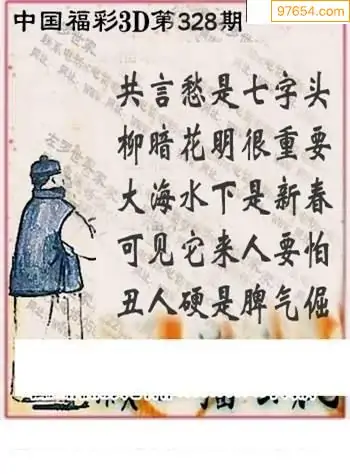 中国福彩3D第328期
97654.com
共言愁是七字头
柳暗花明很重要
大海水下是新春
可见它来人要怕
丑人硬是脾气倔